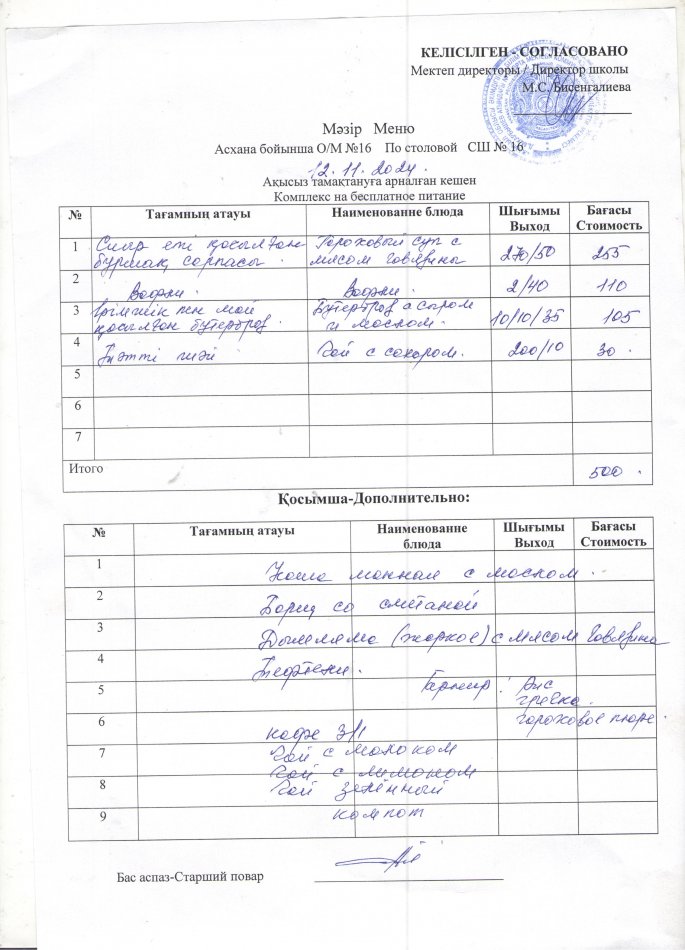 КЕЛІСІЛГЕН - СОГЛАСОВАНО
Мектеп директоры / Директор школы
М.С. Бисенгалиева
Мәзір Меню
Асхана бойынша О/М №16 По столовой СШ № 16
12.11.2024
Ақысыз тамақтануға арналған кешен
Комплекс на бесплатное питание
№ Тағамның атауы Наименование блюда Шығымы Выход Бағасы Стоимость
1 Сиыр еті қосылған бұршақ сорпасы. Гороховый суп с мясом говядины 270/50 255
2 Вафли. Вафли. 2/40 110
3 Ірімшік пен май қосылған бутерброд Бутерброд с сыром и маслом. 10/10/35 105
4 Тәтті шәй Чай с сахаром. 200/10 30.
5
6
7
Итого 500.
Қосымша-Дополнительно:
№ Тағамның атауы Наименование блюда Шығымы Выход Бағасы Стоимость
1 Каша манная с маслом
2 Борщ со сметаной
3 Дымляма (жаркое) с мясом говядина
4 Тефтели.
5 Гарнир: Рис
гречка.
6 гороховое пюре.
кофе 3/1
7 Чай с молоком
Чай с лимоном
8 Чай зелённый
9 компот
Бас аспаз-Старший повар